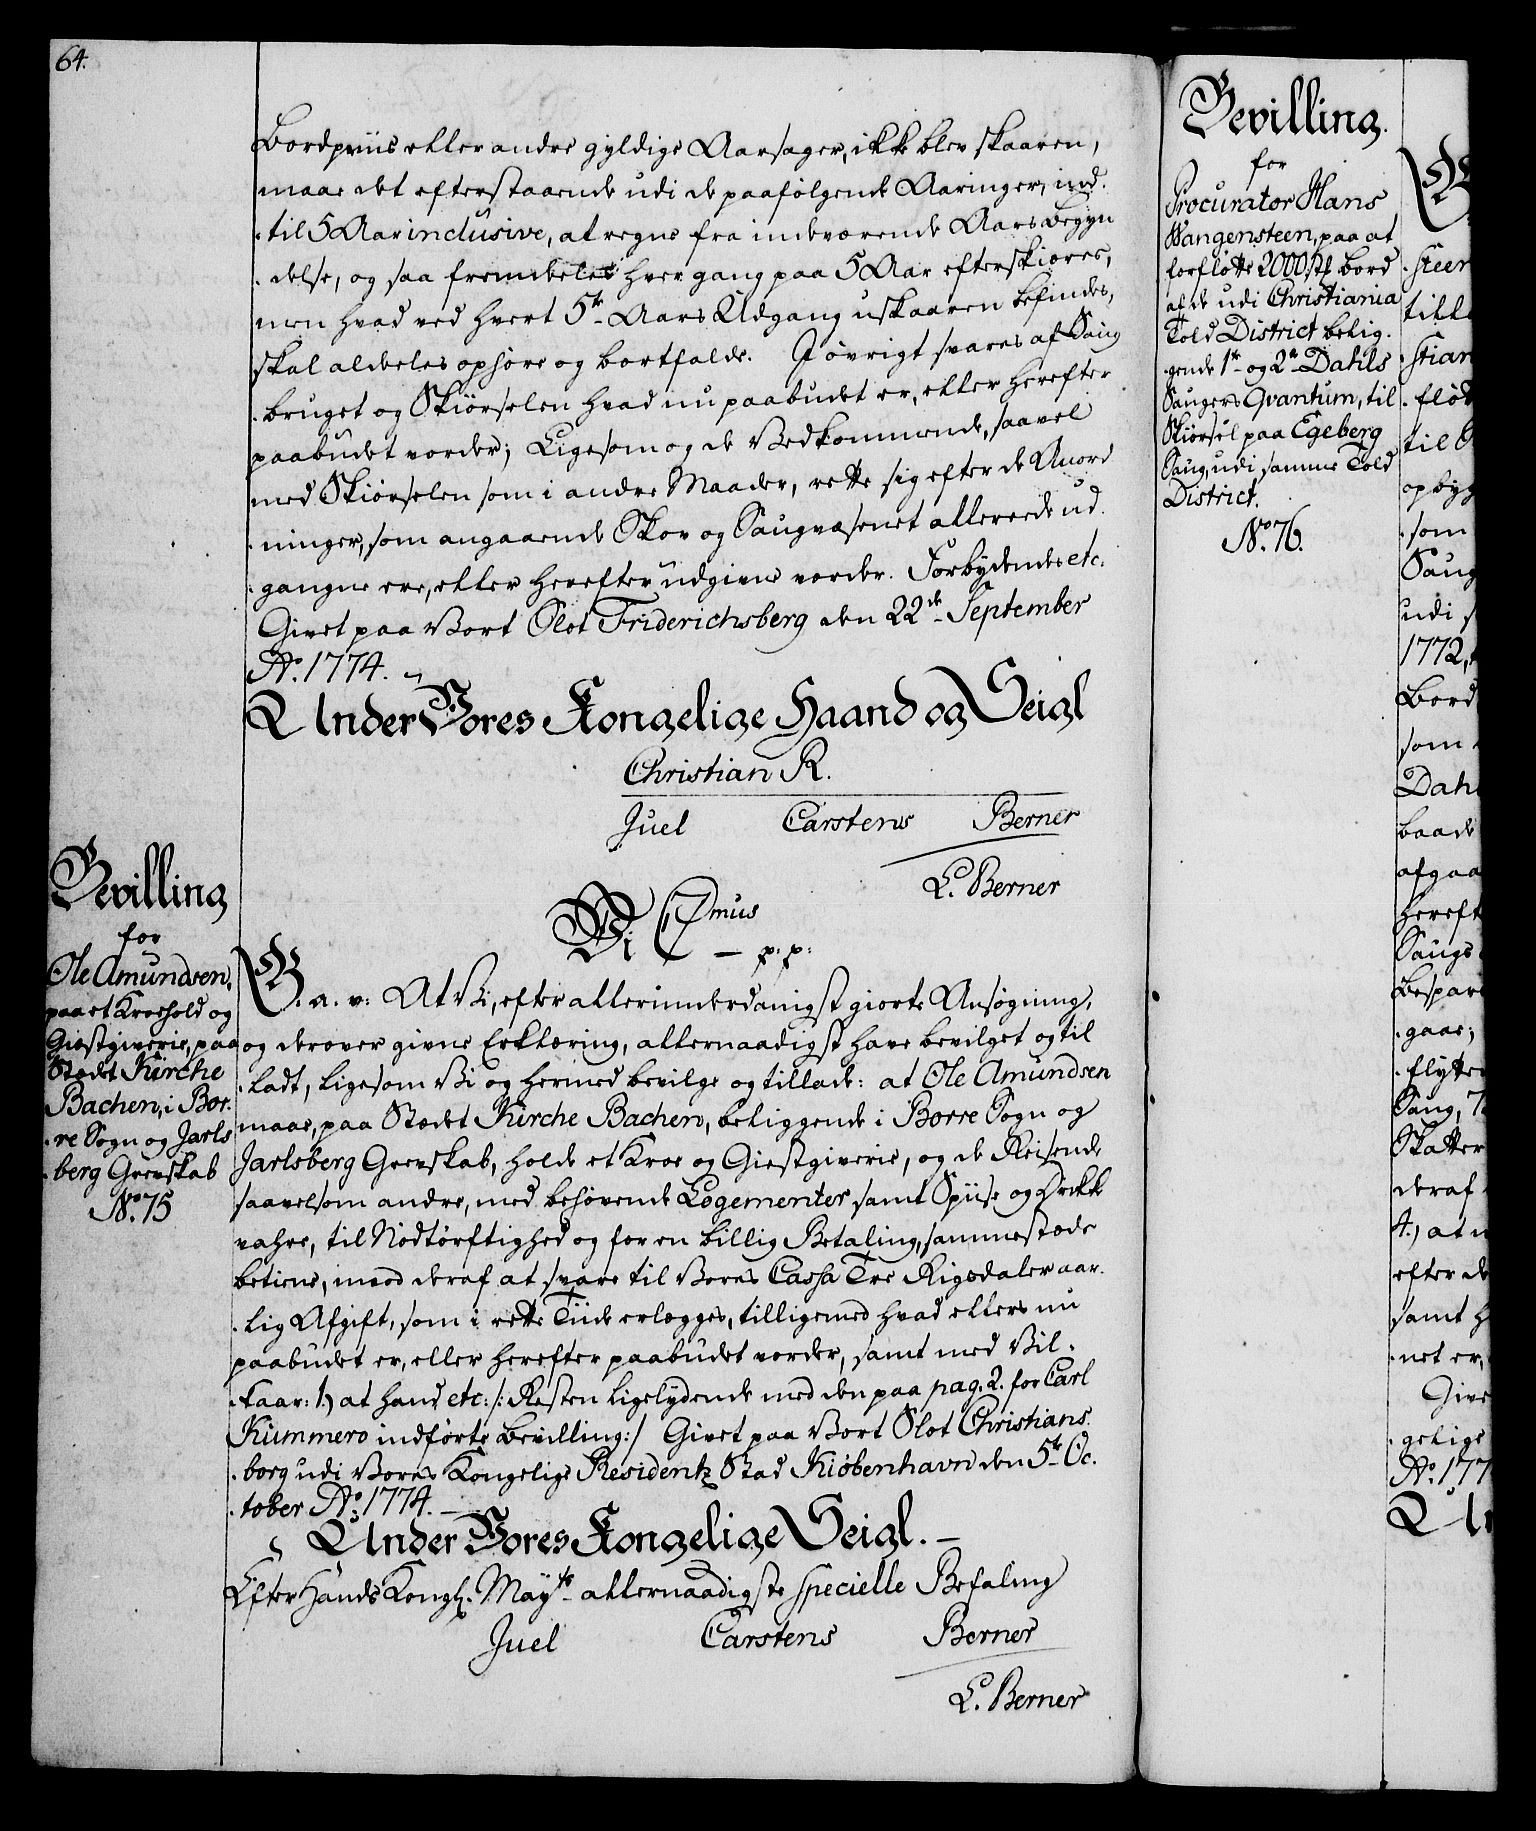 64.
Bordpriis eller andre gyldige Aarsager, ikke blev skaaren,
maae det efterstaaende udi de paafölgende Aaringer, ind-
-til 5 Aar inclusive, at regne fra indeværende Aars Begyn
-delse, og saa fremdeles hver gang paa 5 Aar efterskiæres,
men hvad ved hvert 5te Aars Udgang uskaaren befindes,
skal aldeles ophöre og bortfalde. I övrigt svares af Saug
-bruget og Skiörselen hvad nu paabudet er, eller herefter
paabudet vorder; Ligesom og de Vedkommende, saavel
med Skiörselen som i andre Maader, rette sig efter de Anord
-ninger, som angaaende Skov og Saugvæsenet allereede ud-
-gangne ere, eller herefter udgivne vorder. Forbydendes etc.
Givet paa Vort Slot Friderichsberg den 22de September
Ao. 1774.
Under Vores Kongelige Haand og Seigl
Christian R.
Juel Carstens Berner
L. Berner
Bevilling
for
Ole Amundsen,
paa et Kroehold og
Giæstgiverie, paa
Stædet Kirche
Bachen, i Bor-
-re Sogn og Jarls
-berg Grevskab
No. 75
Vi C7mus
p: p:
G. a. v: At Vi, efter allerunderdanigst giorte Ansögning,
og derover givne Erklæring, allernaadigst have bevilget og til
-ladt, ligesom Vi og hermed bevilge og tillade: at Ole Amundsen
maae, paa Stædet Kirche Bachen, beliggende i Borre Sogn og
Jarlsberg Grevskab, holde et Kroe og Giestgiverie, og de Reisende
saavelsom andre, med behövende Logementer, samt Spiise og Drikke
vahre, til Nödtörftighed og for en billig Betaling, sammestæde
betiene, imod deraf at svare til Vores Cassa Tre Rigsdaler aar-
-lig Afgift, som i rette Tiide erlægges, tilligemed hvad ellers nu
paabudet er, eller herefter paabudet vorder, samt med Vil-
-kaar: 1.) at hand etc: /: Resten ligelydende med den paa pag. 2. for Carl
Kummero indförte Bevilling:/ Givet paa Vort Slot Christians-
-borg udi Vores Kongelige Residentz Stad Kiöbenhavn den 5te Oc-
-tober Ao. 1774.
Under Vores Kongelige Seigl.
Efter Hands Kongl. Mayts allernaadigste specielle Befaling
Juel Carstens Berner
L. Berner
Bevilling
for
Procurator Hans
Wangensteen, paa at
forflötte 2000 stk bord
af de udi Christiania
Told District belig-
-gende 1te og 2de Dahls
Saugers Qvantum, til
Skiörsel paa Egeberg
Saug, udi samme Told
District.
No. 76.